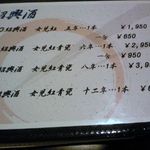 紹興酒
紹興酒 女児紅 五年…1本 ¥1,950
一合 ¥650
紹興酒 女児紅青瓷 六年…1本 ¥2,950
一合 ¥950
紹興酒 女児紅青瓷 八年…1本 ¥3,9
紹興酒 女児紅青瓷 十二年…1本 ¥6